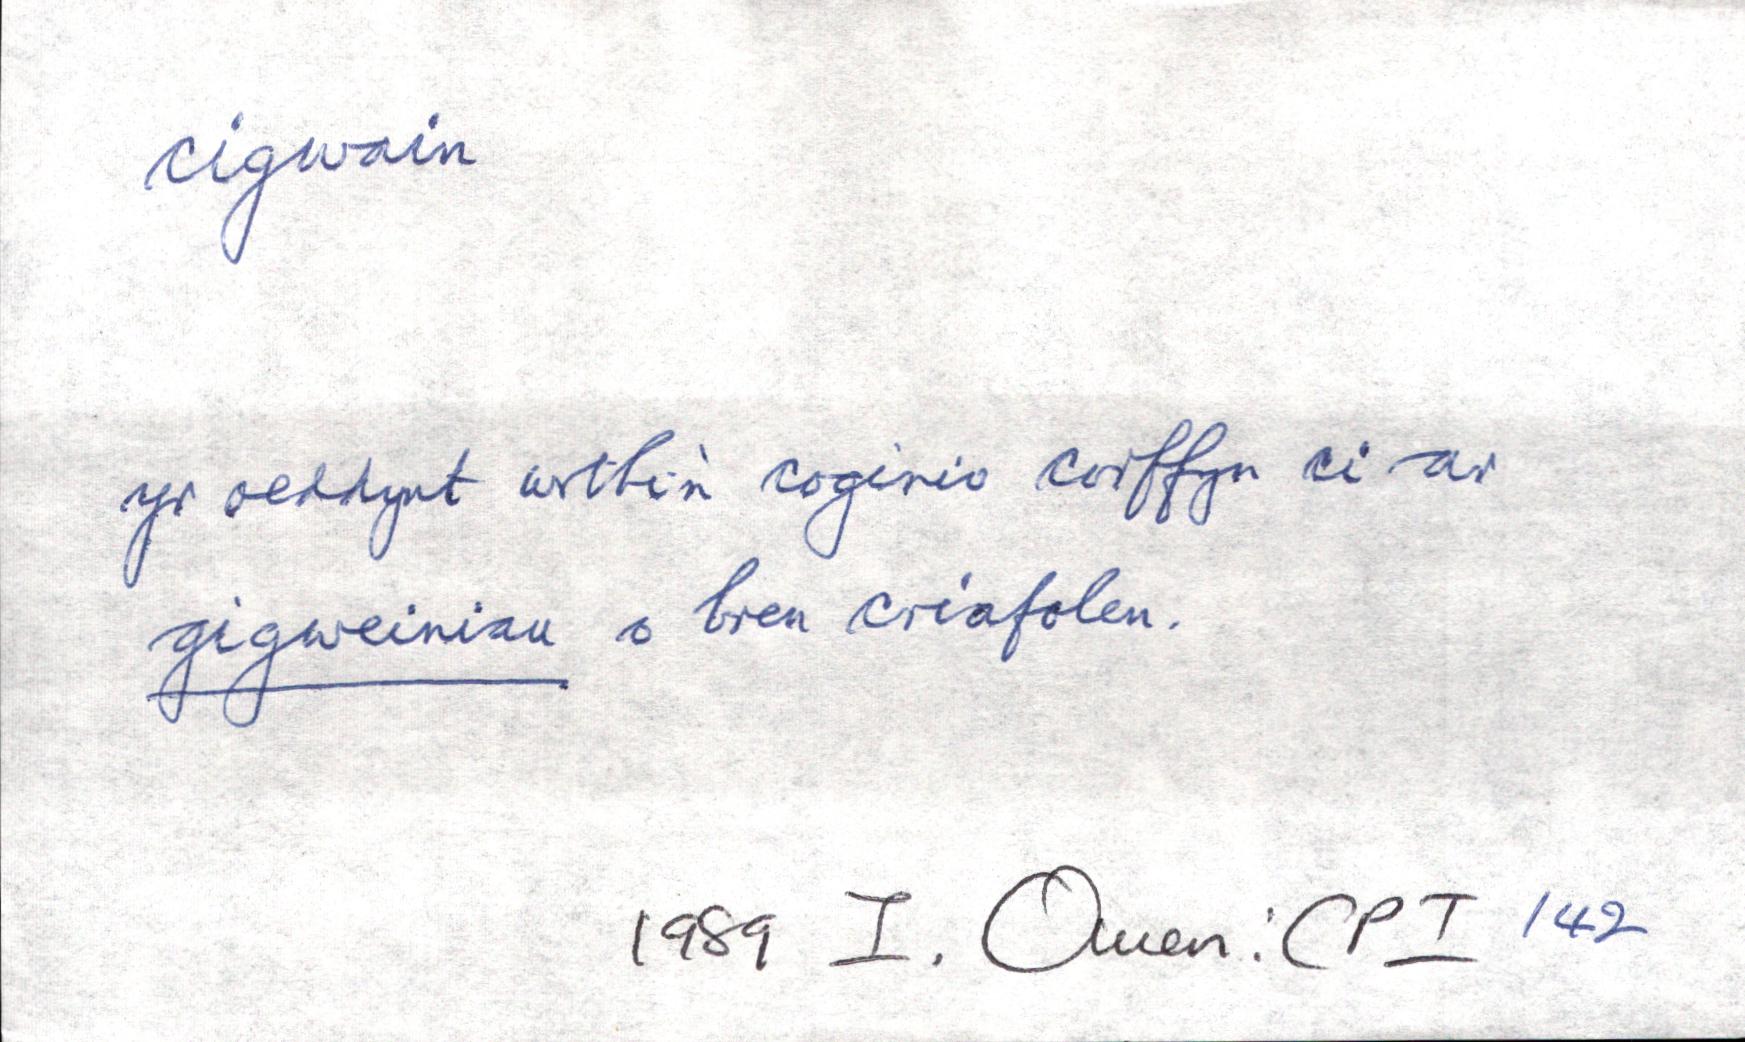 cigwain
yr oeddynt wrthi'n coginio corffyn ci ar
gigweiniau o bren criafolen.
1989 I. Owen: CPI 142